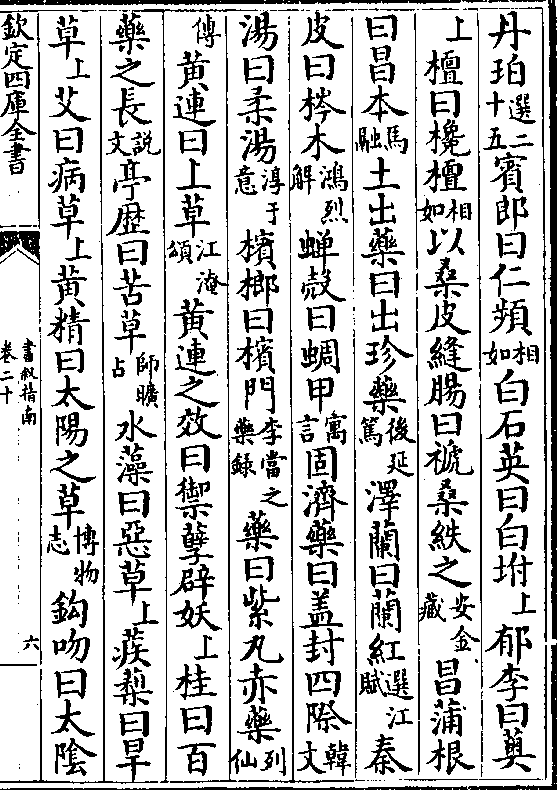 丹珀選二十五賓郎曰仁頻相如白石英曰白坿上郁李曰薁
上檀曰欃檀相如以桑皮縫腸曰褫桑紩之安金藏昌蒲根
曰昌本馬融土出藥曰出珍藥後延篤澤蘭曰蘭紅選江賦秦
皮曰梣木鴻烈解蝉殼曰蜩甲寓言固濟藥曰盖封四際韓文
湯曰柔湯淳于意檳榔曰檳門李當之藥錄藥曰紫丸赤藥列仙
傳黄連曰上草江淹頌黄連之效曰禦孽辟妖上桂曰百
藥之長説文亭歴曰苦草師曠占水藻曰惡草上蒺梨曰旱
草上艾曰病草上黄精曰太陽之草博物志鈎吻曰太陰
欽定四庫全書
書叙指南
卷二十
六